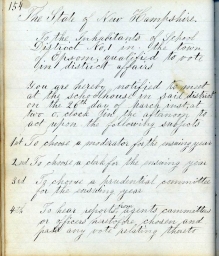 154
The State of New Hampshire.
To the Inhabitants of School
District No. 1 in the town
of Epsom, qualified to vote
in district affairs
You are hereby notified to meet
at the schoolhouse in said district
on the 20th day of March inst at
two o,clock in the afternoon to
act upon the following subjects
1st To choose a moderator for the ensuing year
2nd To choose a clerk for the ensuing year
3rd To choose a prudential committee
for the ensuing year
4th To hear reports from agents, committees
or officers heretofore chosen, and
pass any vote relating thereto